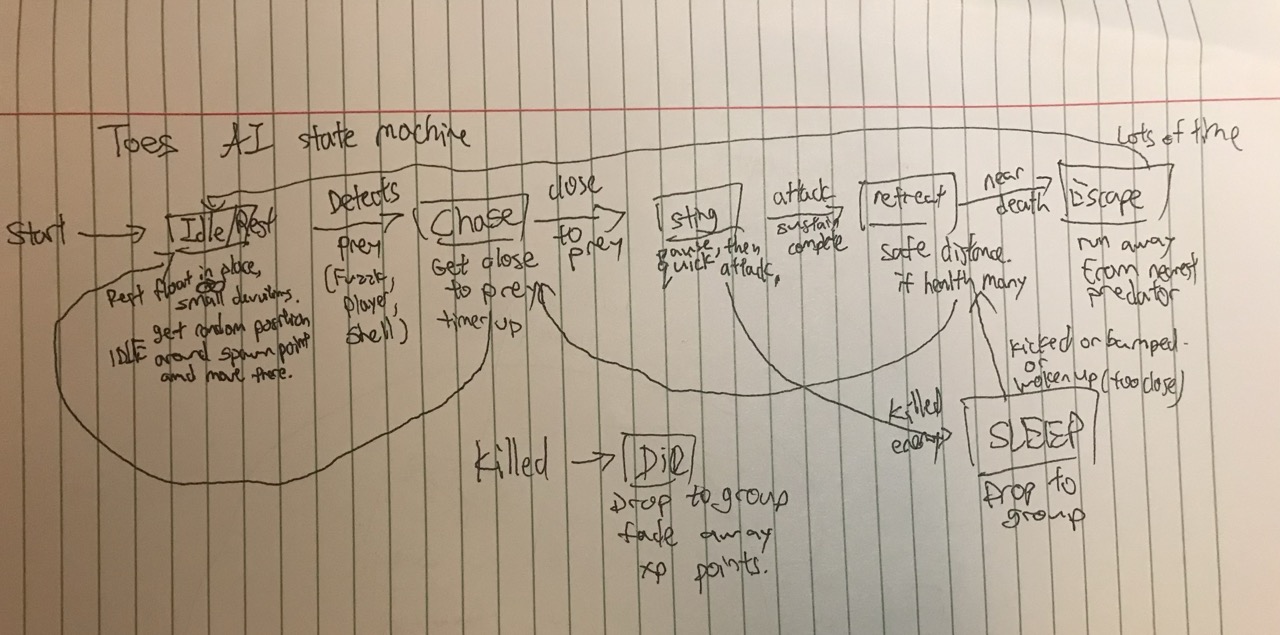 Toes AI state machine
Lots of time
Start
Idle/Rest
Rest float in place,
small deviations.
IDLE get random position
around spawn point
and move there.
Detects
prey
(Fuzzk,
player,
shell)
Chase
Get close
to prey
timer up
close
to
prey
sting
pause, then
quick attack,
attack
sustain
complete
retreat
safe distance.
if healthy many
near
death
Escape
run away
from nearest
predator
Kicked or bumped.
or
woken up (too close)
killed
enemy
SLEEP
Drop to
group
Killed
Die
Drop to group
fade away
xp points.